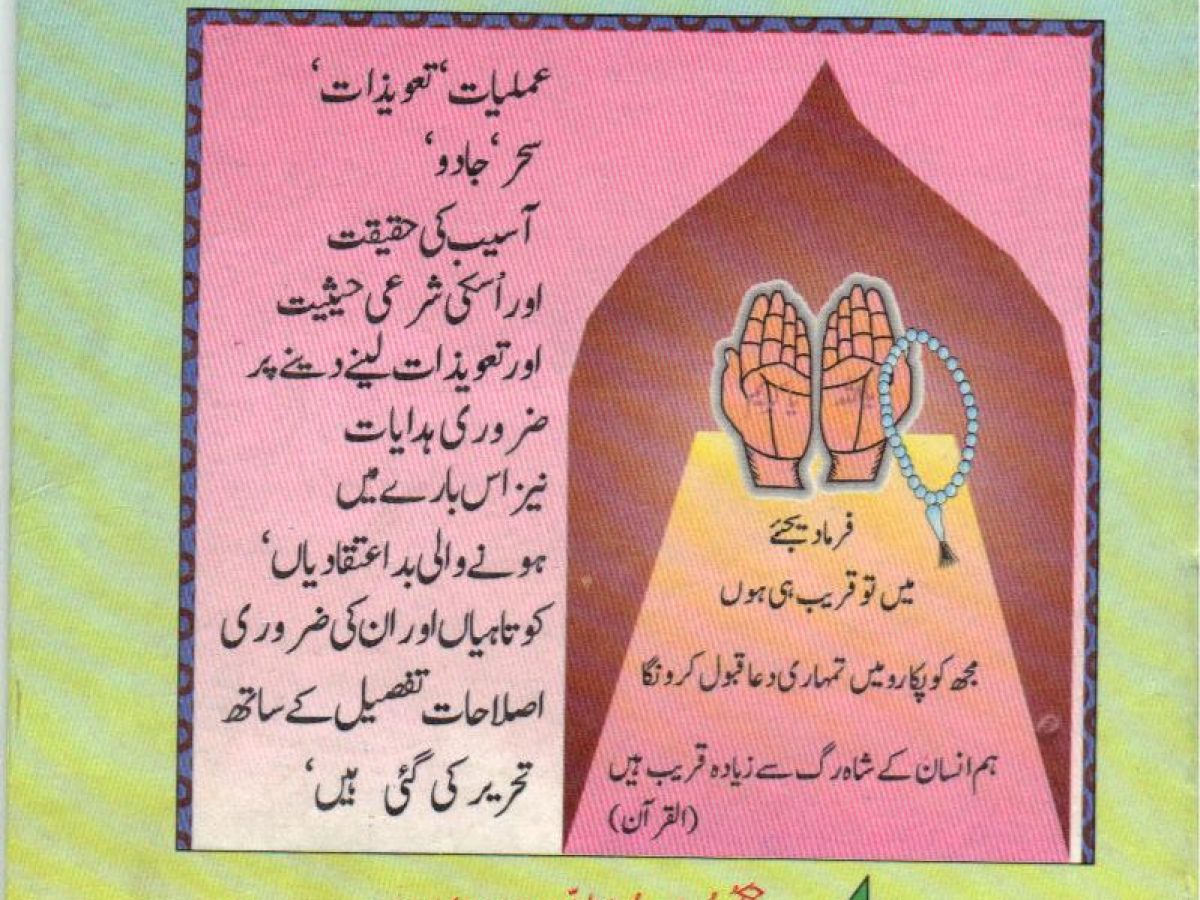 عملیات‘ تعویذات‘
سحر‘ جادو‘
آسیب کی حقیقت
اور اُسکی شرعی حیثیت
اور تعویذات لینے دینے پر
ضروری ہدایات
نیز اس بارے میں
ہونے والی بد اعتقادیاں‘
کوتاہیاں اور ان کی ضروری
اصلاحات تفصیل کے ساتھ
تحریر کی گئی ہیں‘
فرما دیجئے
میں تو قریب ہی ہوں
مجھ کو پکارو میں تمہاری دعا قبول کرونگا
ہم انسان کے شاہ رگ سے زیادہ قریب ہیں
(القرآن)